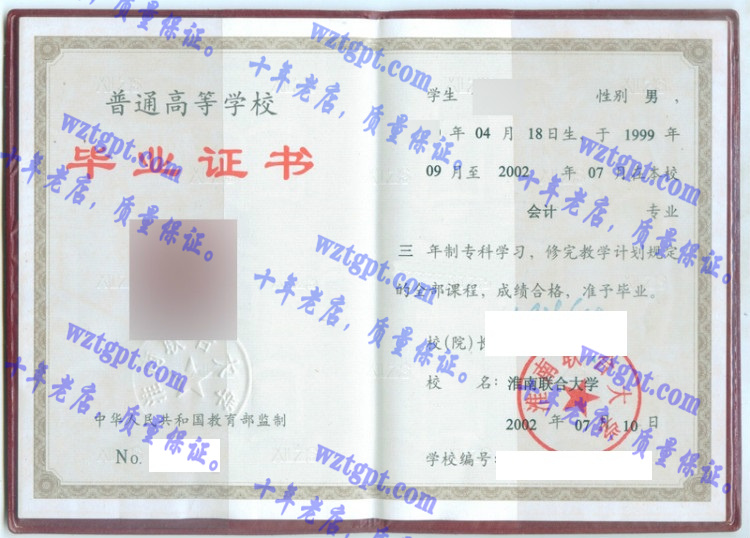 普通高等学校
毕业证书
中华人民共和国教育部监制
No.
学生 性别 男 ,
年 04 月 18日生, 于 1999 年
09 月至 2002 年 07 月在本校
会计 专业
三 年制专科学习, 修完教学计划规定
的全部课程, 成绩合格, 准予毕业。
校(院)长
校 名: 淮南联合大学
2002 年 07 月 10 日
学校编号:
淮南联合大学
wztgpt.com
十年老店, 质量保证。
wztgpt.com
十年老店, 质量保证。
wztgpt.com
十年老店, 质量保证。
wztgpt.com
十年老店, 质量保证。
wztgpt.com
十年老店, 质量保证。
wztgpt.com
十年老店, 质量保证。
wztgpt.com
十年老店, 质量保证。